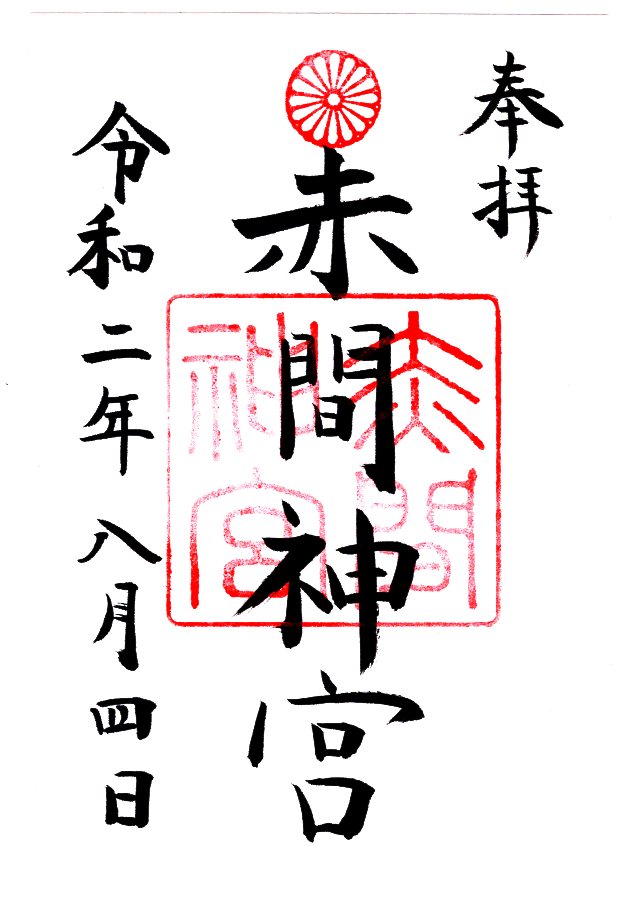 奉拝
赤間神宮
赤間神宮
令和二年八月四日